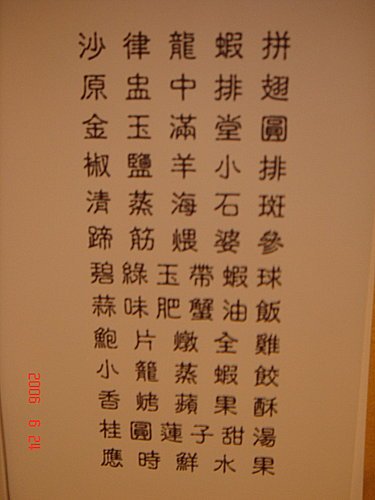 沙律龍蝦拼
原盅中排翅
金玉滿堂圓
椒鹽羊小排
清蒸海石斑
蹄筋煨婆參
碧綠玉帶蝦球
蒜味肥蟹油飯
鮑片燉全雞
小籠蒸蝦餃
香烤蘋果酥
桂圓蓮子甜湯
應時鮮水果
2006 6 24